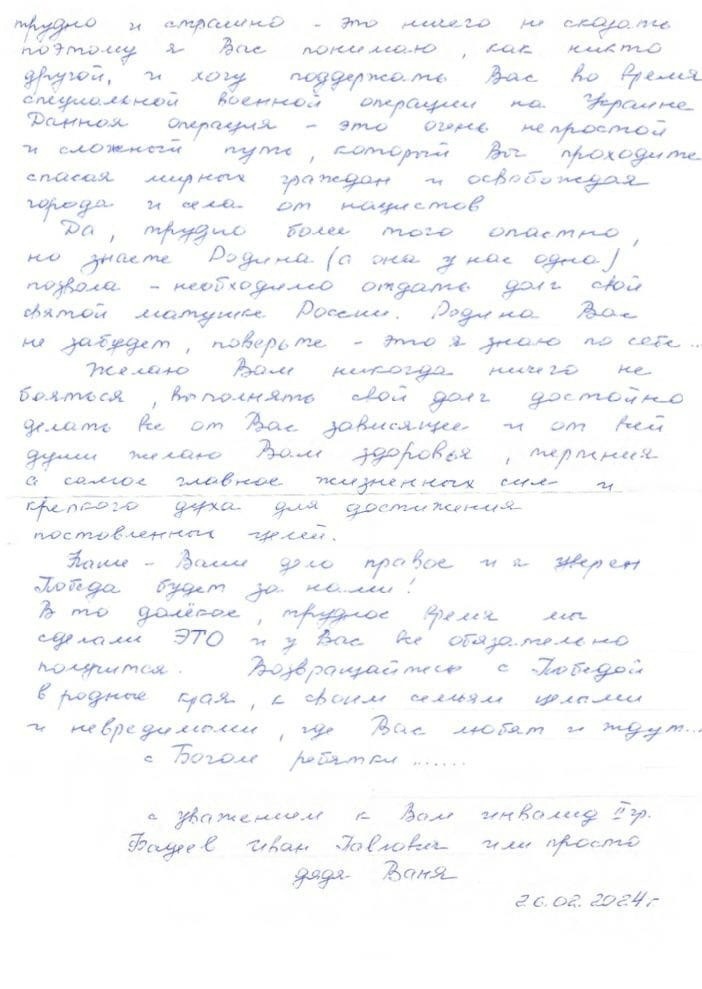 трудно и страшно - это ничего не сказать
поэтому я Вас понимаю, как никто
другой, и хочу поддержать Вас во время
специальной военной операции на Украине
Данная операция - это очень непростой
и сложный путь, который Вы проходите
спасая мирных граждан и освобождая
города и села от нацистов
Да, трудно более того опастно,
но знаете Родина (а она у нас одна)
позвала - необходимо отдать долг свой
святой матушке России. Родина Вас
не забудет, поверьте - это я знаю по себе...
Желаю Вам никогда ничего не
бояться, выполнять свой долг достойно
делать все от Вас зависящее и от всей
души желаю Вам здоровья, терпения
а самое главное жизненных сил и
крепкого духа для достижения
поставленных целей.
Наше - Ваше дело правое и я уверен
Победа будет за нами!
В то далёкое, трудное время мы
сделали ЭТО и у Вас все обязательно
получится. Возвращайтесь с Победой
в родные края, к своим семьям целыми
и невредимыми, где Вас любят и ждут...
с Богом ребятки......
с уважением к Вам инвалид II гр.
Иван Павлович или просто
дядя Ваня
26.02.2024г